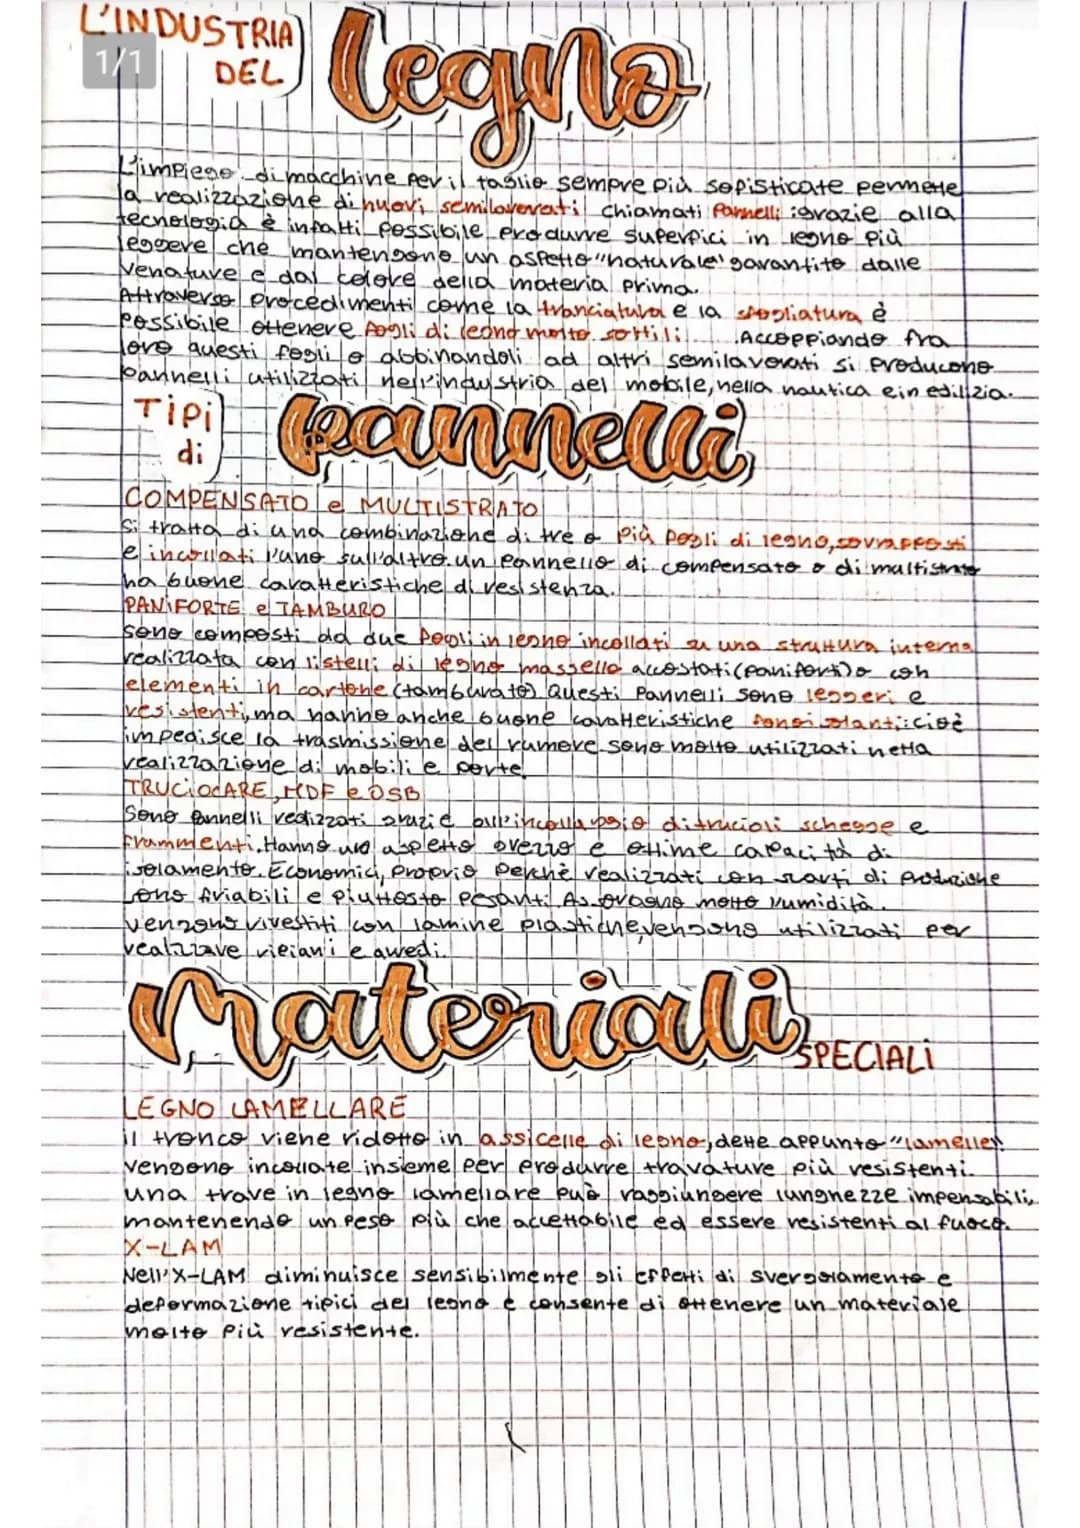 L'INDUSTRIA
1/1
DEL
legno
L'impiego di macchine per il taglio sempre più sofisticate permette
la realizzazione di nuovi semilavorati chiamati Pannelli: grazie alla
tecnologia è infatti possibile produrre superfici in legno più
leggere che mantengono un aspetto "naturale" garantito dalle
venature e dal colore della materia prima.
Attraverso procedimenti come la tranciatura e la sfogliatura è
possibile ottenere fogli di legno molto sottili. Accoppiando fra
loro questi fogli o abbinandoli ad altri semilavorati si producono
pannelli utilizzati nell'industria del mobile, nella nautica e in edilizia.
Tipi
di
pannelli
COMPENSATO e MULTISTRATO
Si tratta di una combinazione di tre o più fogli di legno, sovrapposti
e incollati l'uno sull'altro. un pannello di compensato o di multistrato
ha buone caratteristiche di resistenza.
PANIFORTE e TAMBURO
Sono composti da due fogli in legno incollati su una struttura interna
realizzata con listelli di legno massello accostati (paniforti) o con
elementi in cartone (tamburato) Questi Pannelli sono leggeri e
resistenti, ma hanno anche buone caratteristiche fonoisolanti: cioè
impedisce la trasmissione del rumore sono molto utilizzati nella
realizzazione di mobili e porte.
TRUCIOLARE, MDF e OSB
Sono pannelli realizzati grazie all'incollaggio di trucioli schegge e
frammenti. Hanno un aspetto grezzo e ottime capacità di
isolamento. Economici, proprio perchè realizzati con scarti di produzione
sono friabili e piuttosto pesanti. Assorbono molto l'umidità.
vengono rivestiti con lamine plastiche, vengono utilizzati per
realizzare ripiani e arredi.
Materiali
SPECIALI
LEGNO LAMELLARE
il tronco viene ridotto in assicelle di legno, dette appunto "lamelle".
vengono incollate insieme per produrre travature più resistenti.
una trave in legno lamellare può raggiungere lunghezze impensabili,
mantenendo un peso più che accettabile ed essere resistenti al fuoco.
X-LAM
Nell'X-LAM diminuisce sensibilmente gli effetti di svergolamento e
deformazione tipici del legno e consente di ottenere un materiale
molto più resistente.